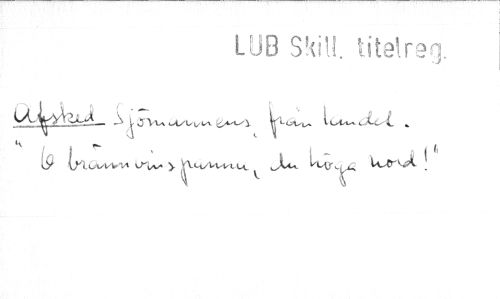 LUB Skill. titelreg.
Afsked Sjömannens, från landet.
"O brännvinspanna, du höga nord!"